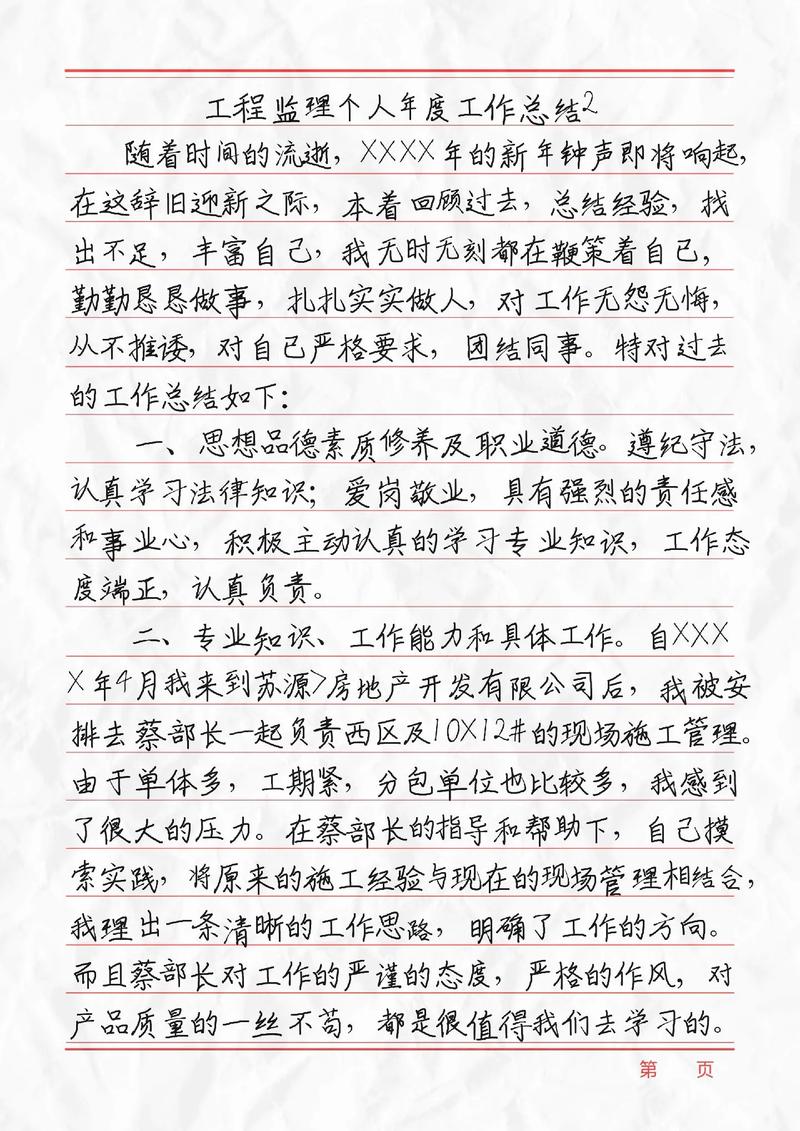 工程监理个人年度工作总结2
随着时间的流逝，XXXX年的新年钟声即将响起，
在这辞旧迎新之际，本着回顾过去，总结经验，找
出不足，丰富自己，我无时无刻都在鞭策着自己，
勤勤恳恳做事，扎扎实实做人，对工作无怨无悔，
从不推诿，对自己严格要求，团结同事。特对过去
的工作总结如下：
一、思想品德素质修养及职业道德。遵纪守法，
认真学习法律知识；爱岗敬业，具有强烈的责任感
和事业心，积极主动认真的学习专业知识，工作态
度端正，认真负责。
二、专业知识、工作能力和具体工作。自XXX
X年4月我来到苏源>房地产开发有限公司后，我被安
排去蔡部长一起负责西区及10X12#的现场施工管理。
由于单体多，工期紧，分包单位也比较多，我感到
了很大的压力。在蔡部长的指导和帮助下，自己摸
索实践，将原来的施工经验与现在的现场管理相结合，
我理出一条清晰的工作思路，明确了工作的方向。
而且蔡部长对工作的严谨的态度，严格的作风，对
产品质量的一丝不苟，都是很值得我们去学习的。
第 页